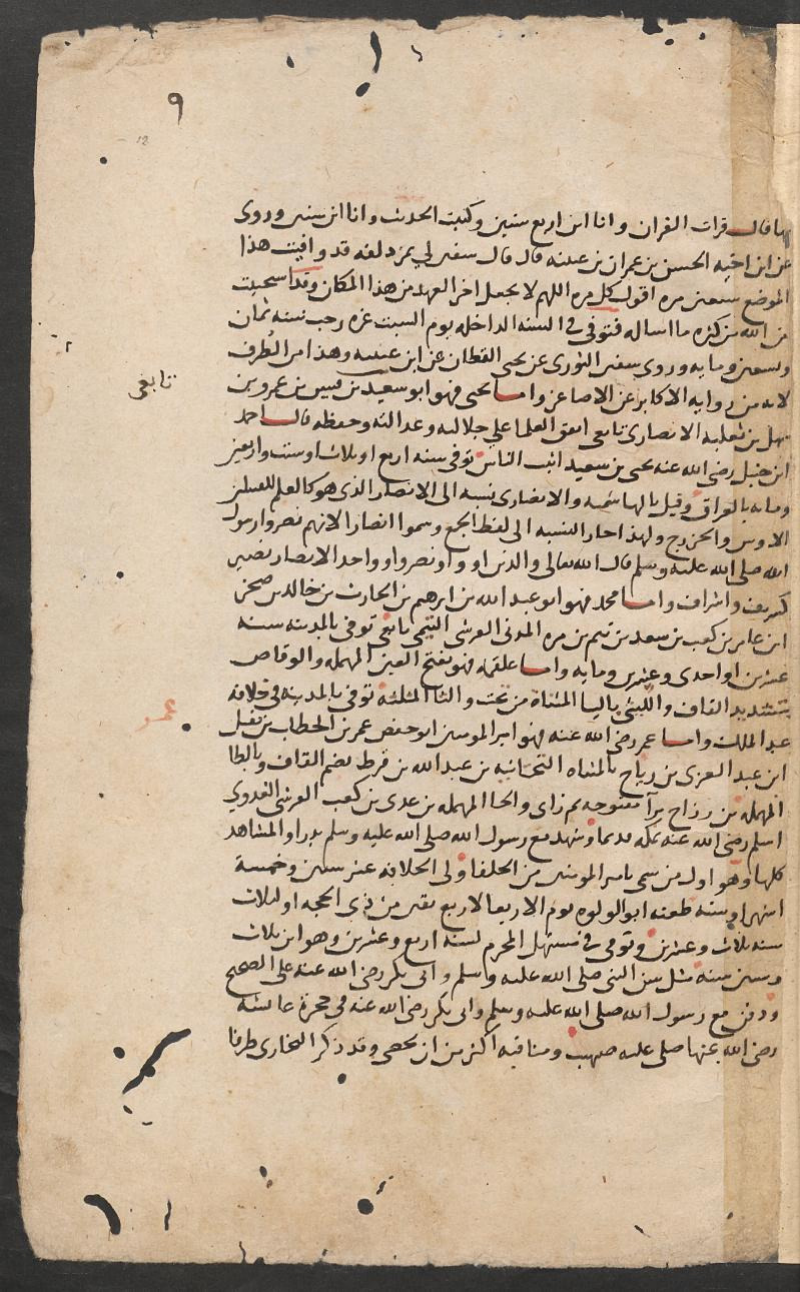 ٩
بها قال قرات القران وانا ابن اربع سنين وكتبت الحديث وانا ابن سبع وروى
عن ابن اخيه الحسن بن عمران بن عيينه قال قال سفين لي بمزدلفه قد وافيت هذا
الموضع سبعين مره اقول كل مره اللهم لا تجعل اخر العهد من هذا المكان وقد استحييت
من الله من كثره ما اساله فتوفى في السنه الداخله يوم السبت غره رجب سنه ثمان
وتسعين ومايه وروى سفين الثورى عن يحيى القطان عن ابن عيينه وهذا من الطرف
لانه من روايه الاكابر عن الاصاغر واما يحيى فهو ابو سعيد بن قيس بن عمرو بن
تابعى
سهل بن ثعلبه الانصارى تابعى اتفق العلما على جلالته وعدالته وحفظه قال احمد
ابن حنبل رضى الله عنه يحيى بن سعيد اثبت الناس توفى سنه اربع او ثلاث او ست واربعين
ومايه بالعراق وقيل بالهاشميه والانصارى نسبه الى الانصار الذى هو كالعلم للقبيلتين
الاوس والخزرج ولهذا جاز النسبه الى لفظ الجمع وسموا انصارا لانهم نصروا رسول
الله صلى الله عليه وسلم قال الله تعالى والذين اووا ونصروا وواحد الانصار نصير
كشريف واشراف واما محمد فهو ابو عبد الله بن ابرهيم بن الحارث بن خالد بن صخر
ابن عامر بن كعب بن سعد بن تيم بن مره المدنى القرشى التيمى تابعى توفى بالمدينه سنه
عشرين او احدى وعشرين ومايه واما علقمه فهو بفتح العين المهمله والوقاص
بتشديد القاف والليثى باليا المثناة من تحت والثا المثلثه توفى بالمدينه فى خلافه
عمر
عبد الملك واما عمر رضى الله عنه فهو امير المومنين ابو حفص عمر بن الخطاب بن نفيل
ابن عبد العزى بن رياح بالمثناه التحتانيه بن عبد الله بن قرط بضم القاف وبالطا
المهمله بن رزاح برآ مفتوحه ثم زاى والحا المهمله بن عدى بن كعب القرشى العدوي
اسلم رضى الله عنه بمكه قديما وشهد مع رسول الله صلى الله عليه وسلم بدرا والمشاهد
كلها وهو اول من سمى بامير المومنين من الخلفا ولى الخلافه عشر سنين وخمسة
اشهر او سته طعنه ابو لولوه يوم الاربعا لاربع بقين من ذى الحجه او لثلاث
سنه ثلاث وعشرين وتوفى فى مستهل المحرم لسنه اربع وعشرين وهو ابن ثلاث
وستين سنه مثل سن النبى صلى الله عليه وسلم وابى بكر رضى الله عنه على الصحيح
ودفن مع رسول الله صلى الله عليه وسلم وابى بكر رضى الله عنه فى حجرة عائشه
رضى الله عنها صلى عليه صهيب ومناقبه اكثر من ان تحصى وقد ذكر البخارى طرفا